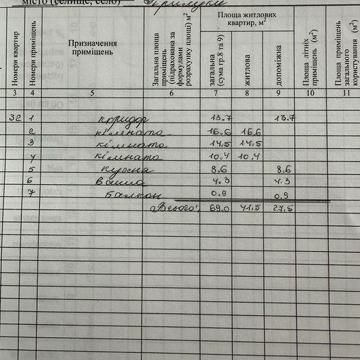 місто (селище, село)
Номери квартир
Номери приміщень
Призначення приміщень
Загальна площа приміщень (підрахована за формулами розрахунку площі) м²
Площа житлових квартир, м²
загальна (сума гр.8 та 9)
житлова
допоміжна
Площа літніх приміщень (м²)
Площа приміщень загального користування (м²)
3 4 5 6 7 8 9 10 11
32 1 коридор 13.7 13.7
2 кімната 16.6 16.6
3 кімната 14.5 14.5
4 кімната 10.4 10.4
5 кухня 8.6 8.6
6 ванна 4.3 4.3
7 балкон 0.9 0.9
Всього: 69.0 41.5 27.5